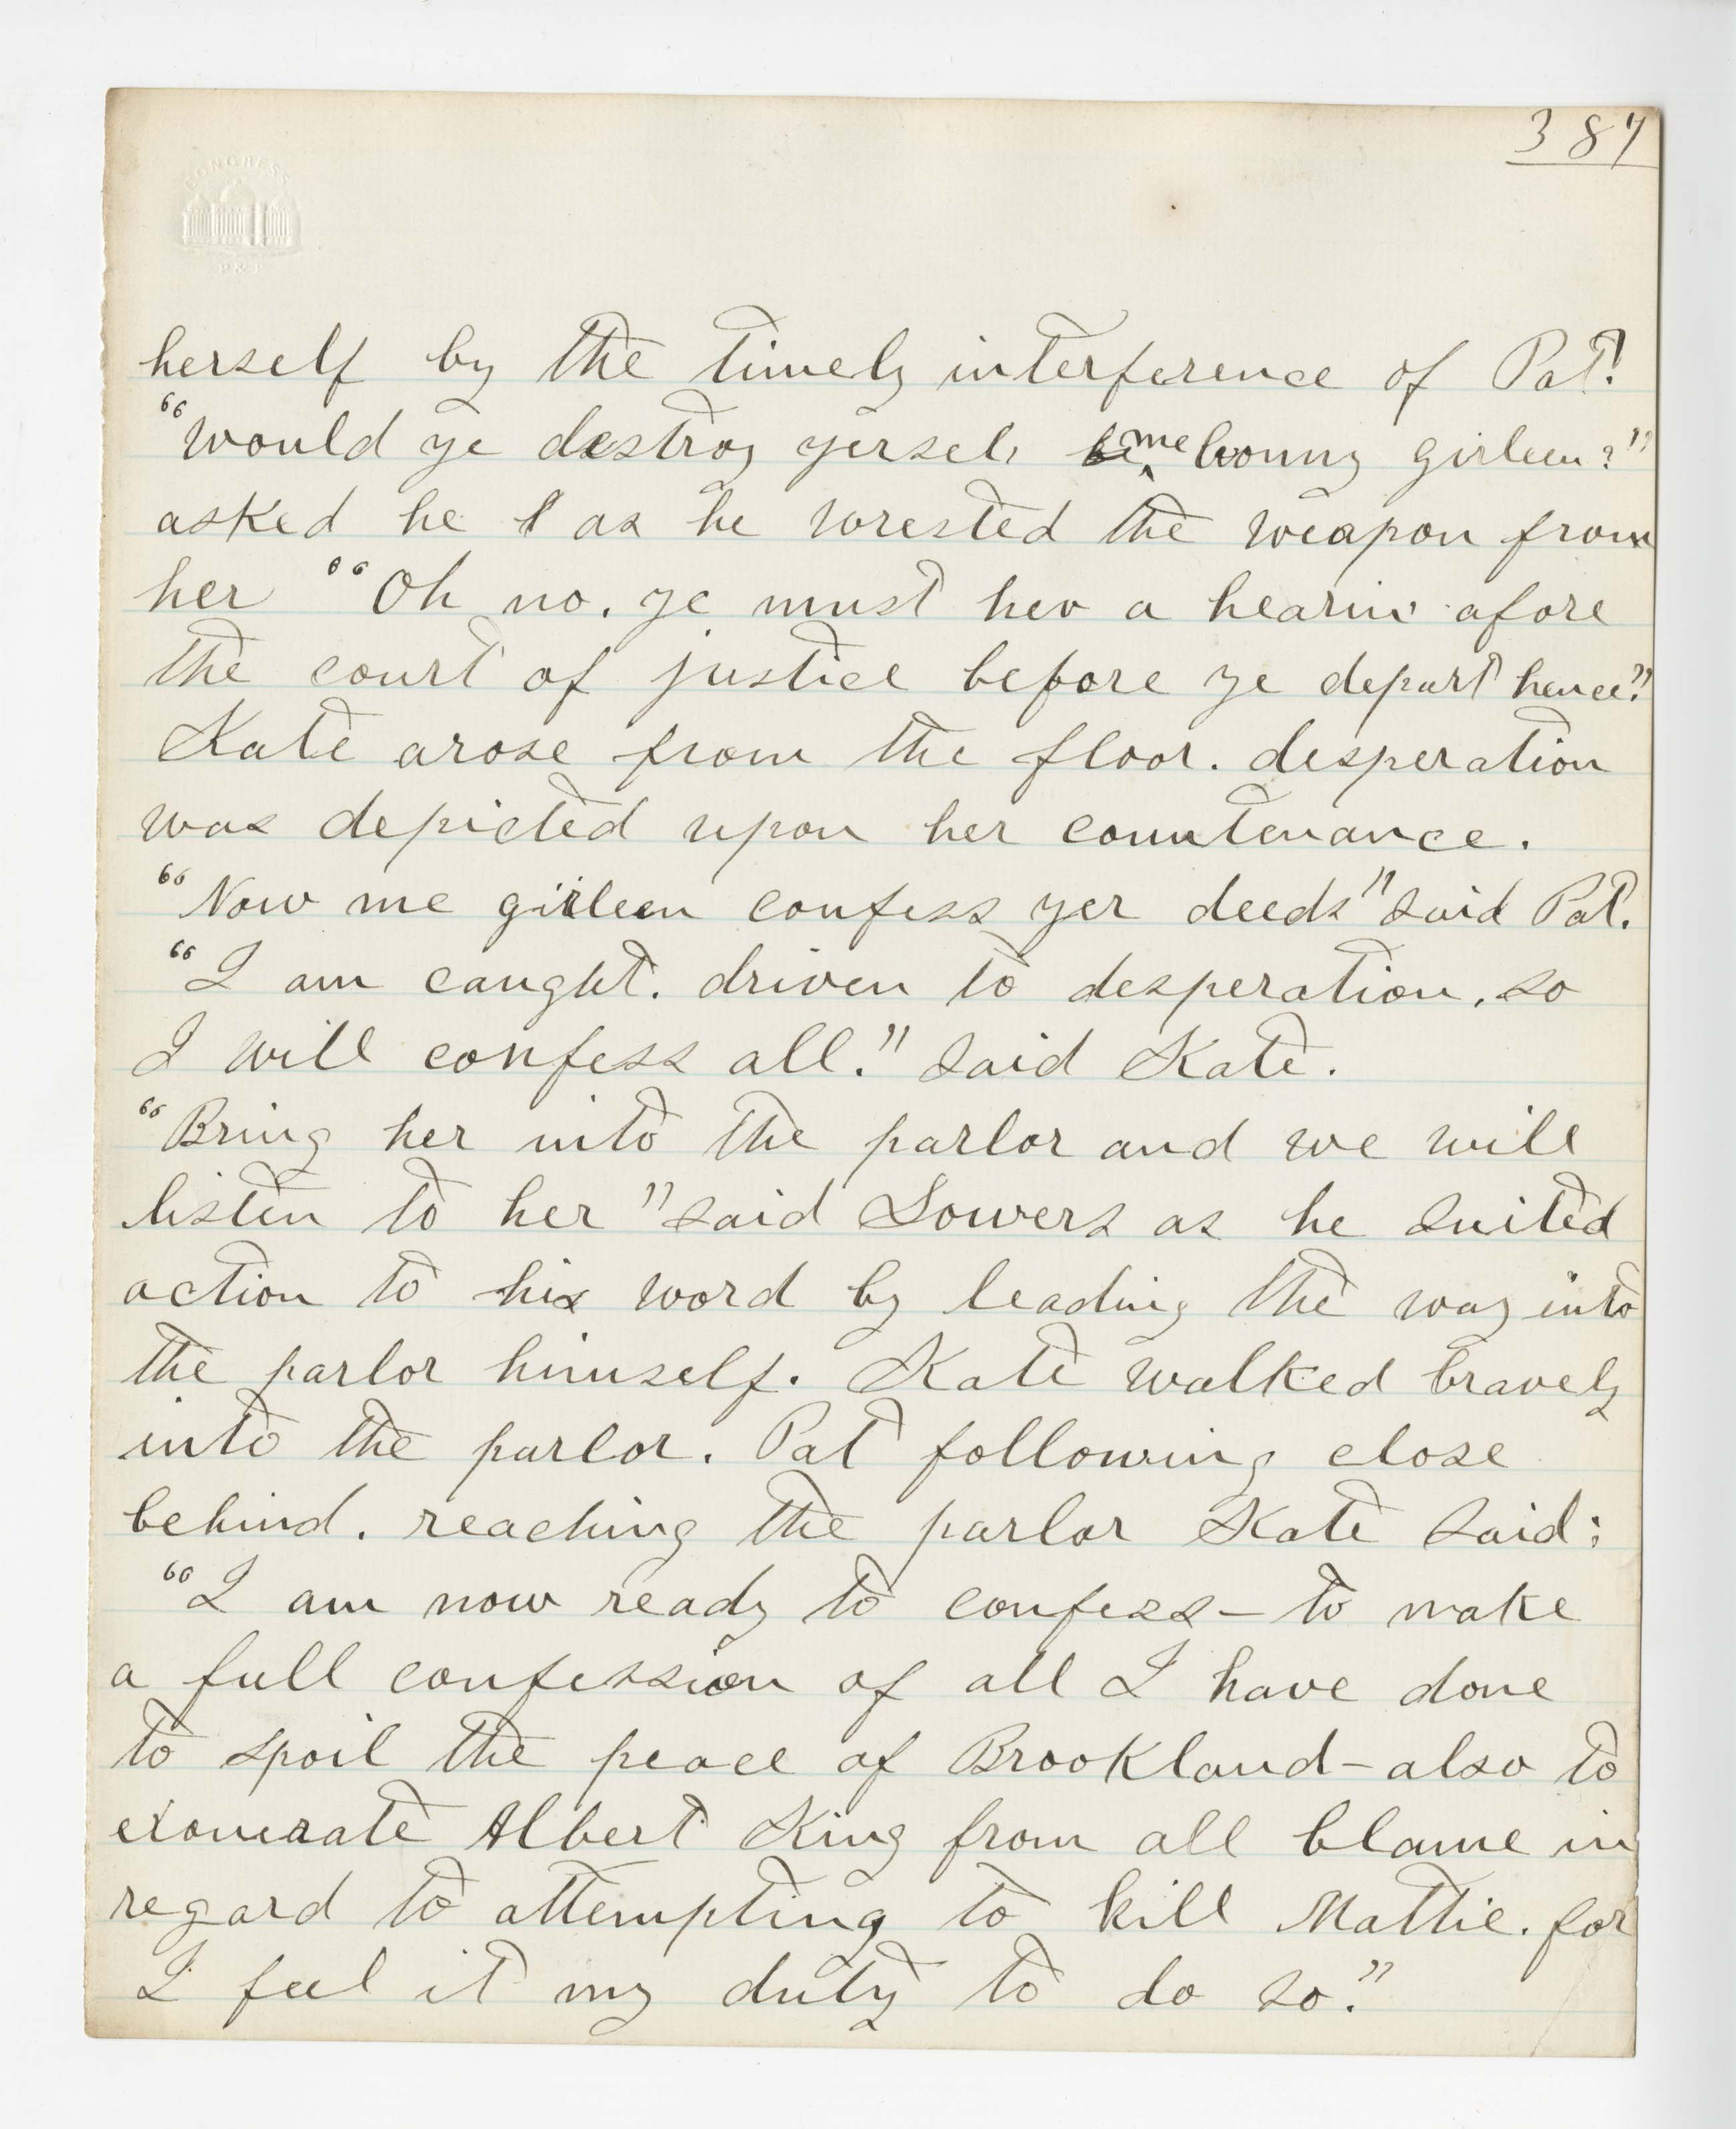 387
CONGRESS
P & P
herself by the timely interference of Pat.
"Would ye destroy yersel, me bonny girleen?"
asked he as he wrested the weapon from
her "Oh no. ye must hev a hearin' afore
the court of justice before ye depart hence."
Kate arose from the floor. desperation
was depicted upon her countenance.
"Now me girleen confess yer deeds" said Pat.
"I am caught. driven to desperation, so
I will confess all." said Kate.
"Bring her into the parlor and we will
listen to her" said Sowers as he suited
action to his word by leading the way into
the parlor himself. Kate walked bravely
into the parlor. Pat following close
behind. reaching the parlor Kate said:
"I am now ready to confess – to make
a full confession of all I have done
to spoil the peace of Brookland – also to
exonerate Albert King from all blame in
regard to attempting to kill Mattie. for
I feel it my duty to do so."